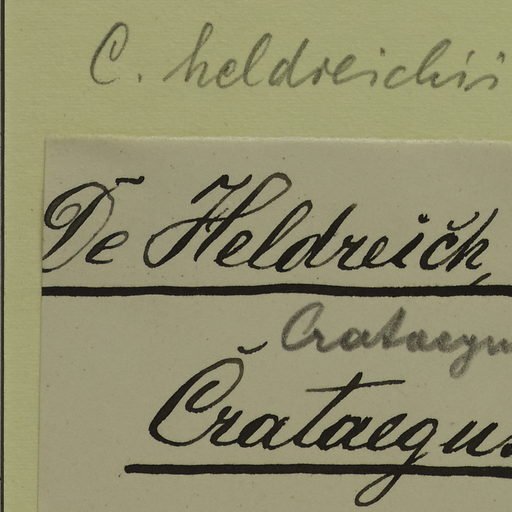 C. heldreichii
De Heldreich,
Crataegu
Crataegus